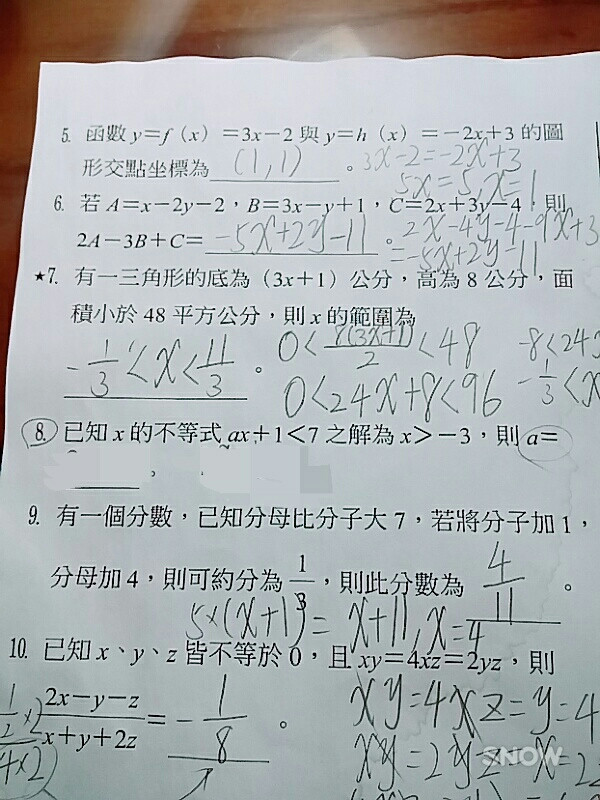 5. 函數 y=f(x)=3x-2 與 y=h(x)=-2x+3 的圖
形交點坐標為 (1,1) 。 3x-2=-2x+3
5x=5, x=1
6. 若 A=x-2y-2，B=3x-y+1，C=2x+3y-4，則
2A-3B+C= -5x+2y-11 。 2x-4y-4-9x+3
=-5x+2y-11
★7. 有一三角形的底為（3x+1）公分，高為 8 公分，面
積小於 48 平方公分，則 x 的範圍為
-1/3 < x < 11/3 。 0< 8(3x+1)/2 <48 -8<24x
0<24x+8<96 -1/3<x
8. 已知 x 的不等式 ax+1<7 之解為 x>-3，則 a=
。
9. 有一個分數，已知分母比分子大 7，若將分子加 1，
分母加 4，則可約分為 1/3，則此分數為 4/11 。
(x+1) = x+11, x=4
10. 已知 x、y、z 皆不等於 0，且 xy=4xz=2yz，則
(2x-y-z)/(x+y+2z) = -1/8 。 xy=4xz=y=4
xy=2yz x=2z
SNOW